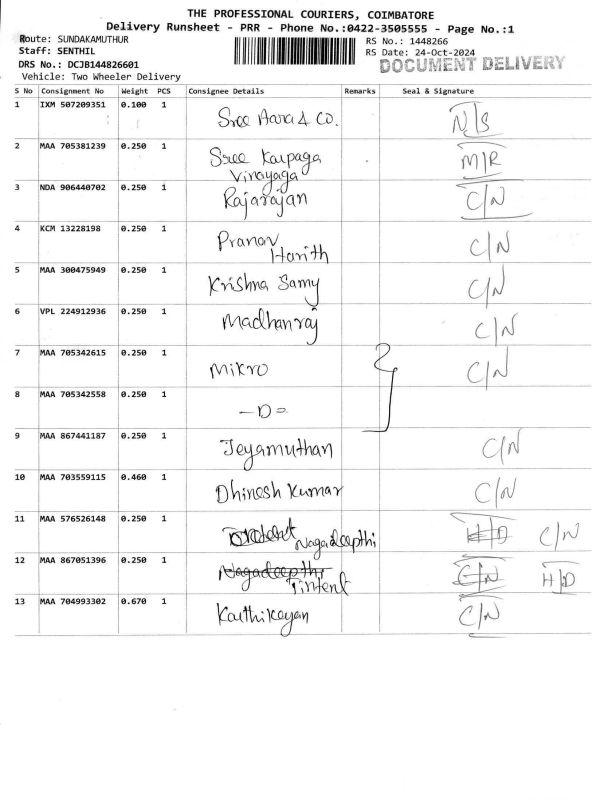 THE PROFESSIONAL COURIERS, COIMBATORE
Delivery Runsheet - PRR - Phone No.:0422-3505555 - Page No.:1
Route: SUNDAKAMUTHUR
Staff: SENTHIL
DRS No.: DCJB144826601
Vehicle: Two Wheeler Delivery
RS No.: 1448266
RS Date: 24-Oct-2024
DOCUMENT DELIVERY
S No Consignment No Weight PCS Consignee Details Remarks Seal & Signature
1 IXM 507209351 0.100 1 Sree Aara & Co. N/S
2 MAA 705381239 0.250 1 Sree Karpaga M/R
Vinayaga
3 NDA 906440702 0.250 1 Rajarajan C/N
4 KCM 13228198 0.250 1 Pranav C/N
Harith
5 MAA 300475949 0.250 1 Krishna Samy C/N
6 VPL 224912936 0.250 1 Madhanraj C/N
7 MAA 705342615 0.250 1 Mikro 2 C/N
8 MAA 705342558 0.250 1 -D=
9 MAA 867441187 0.250 1 Jeyamuthan C/N
10 MAA 703559115 0.460 1 Dhinesh Kumar C/N
11 MAA 576526148 0.250 1 Nagadeepthi H/D C/N
12 MAA 867051396 0.250 1 Nagadeepthi C/N H/D
Tintent
13 MAA 704993302 0.670 1 Karthikayan C/N